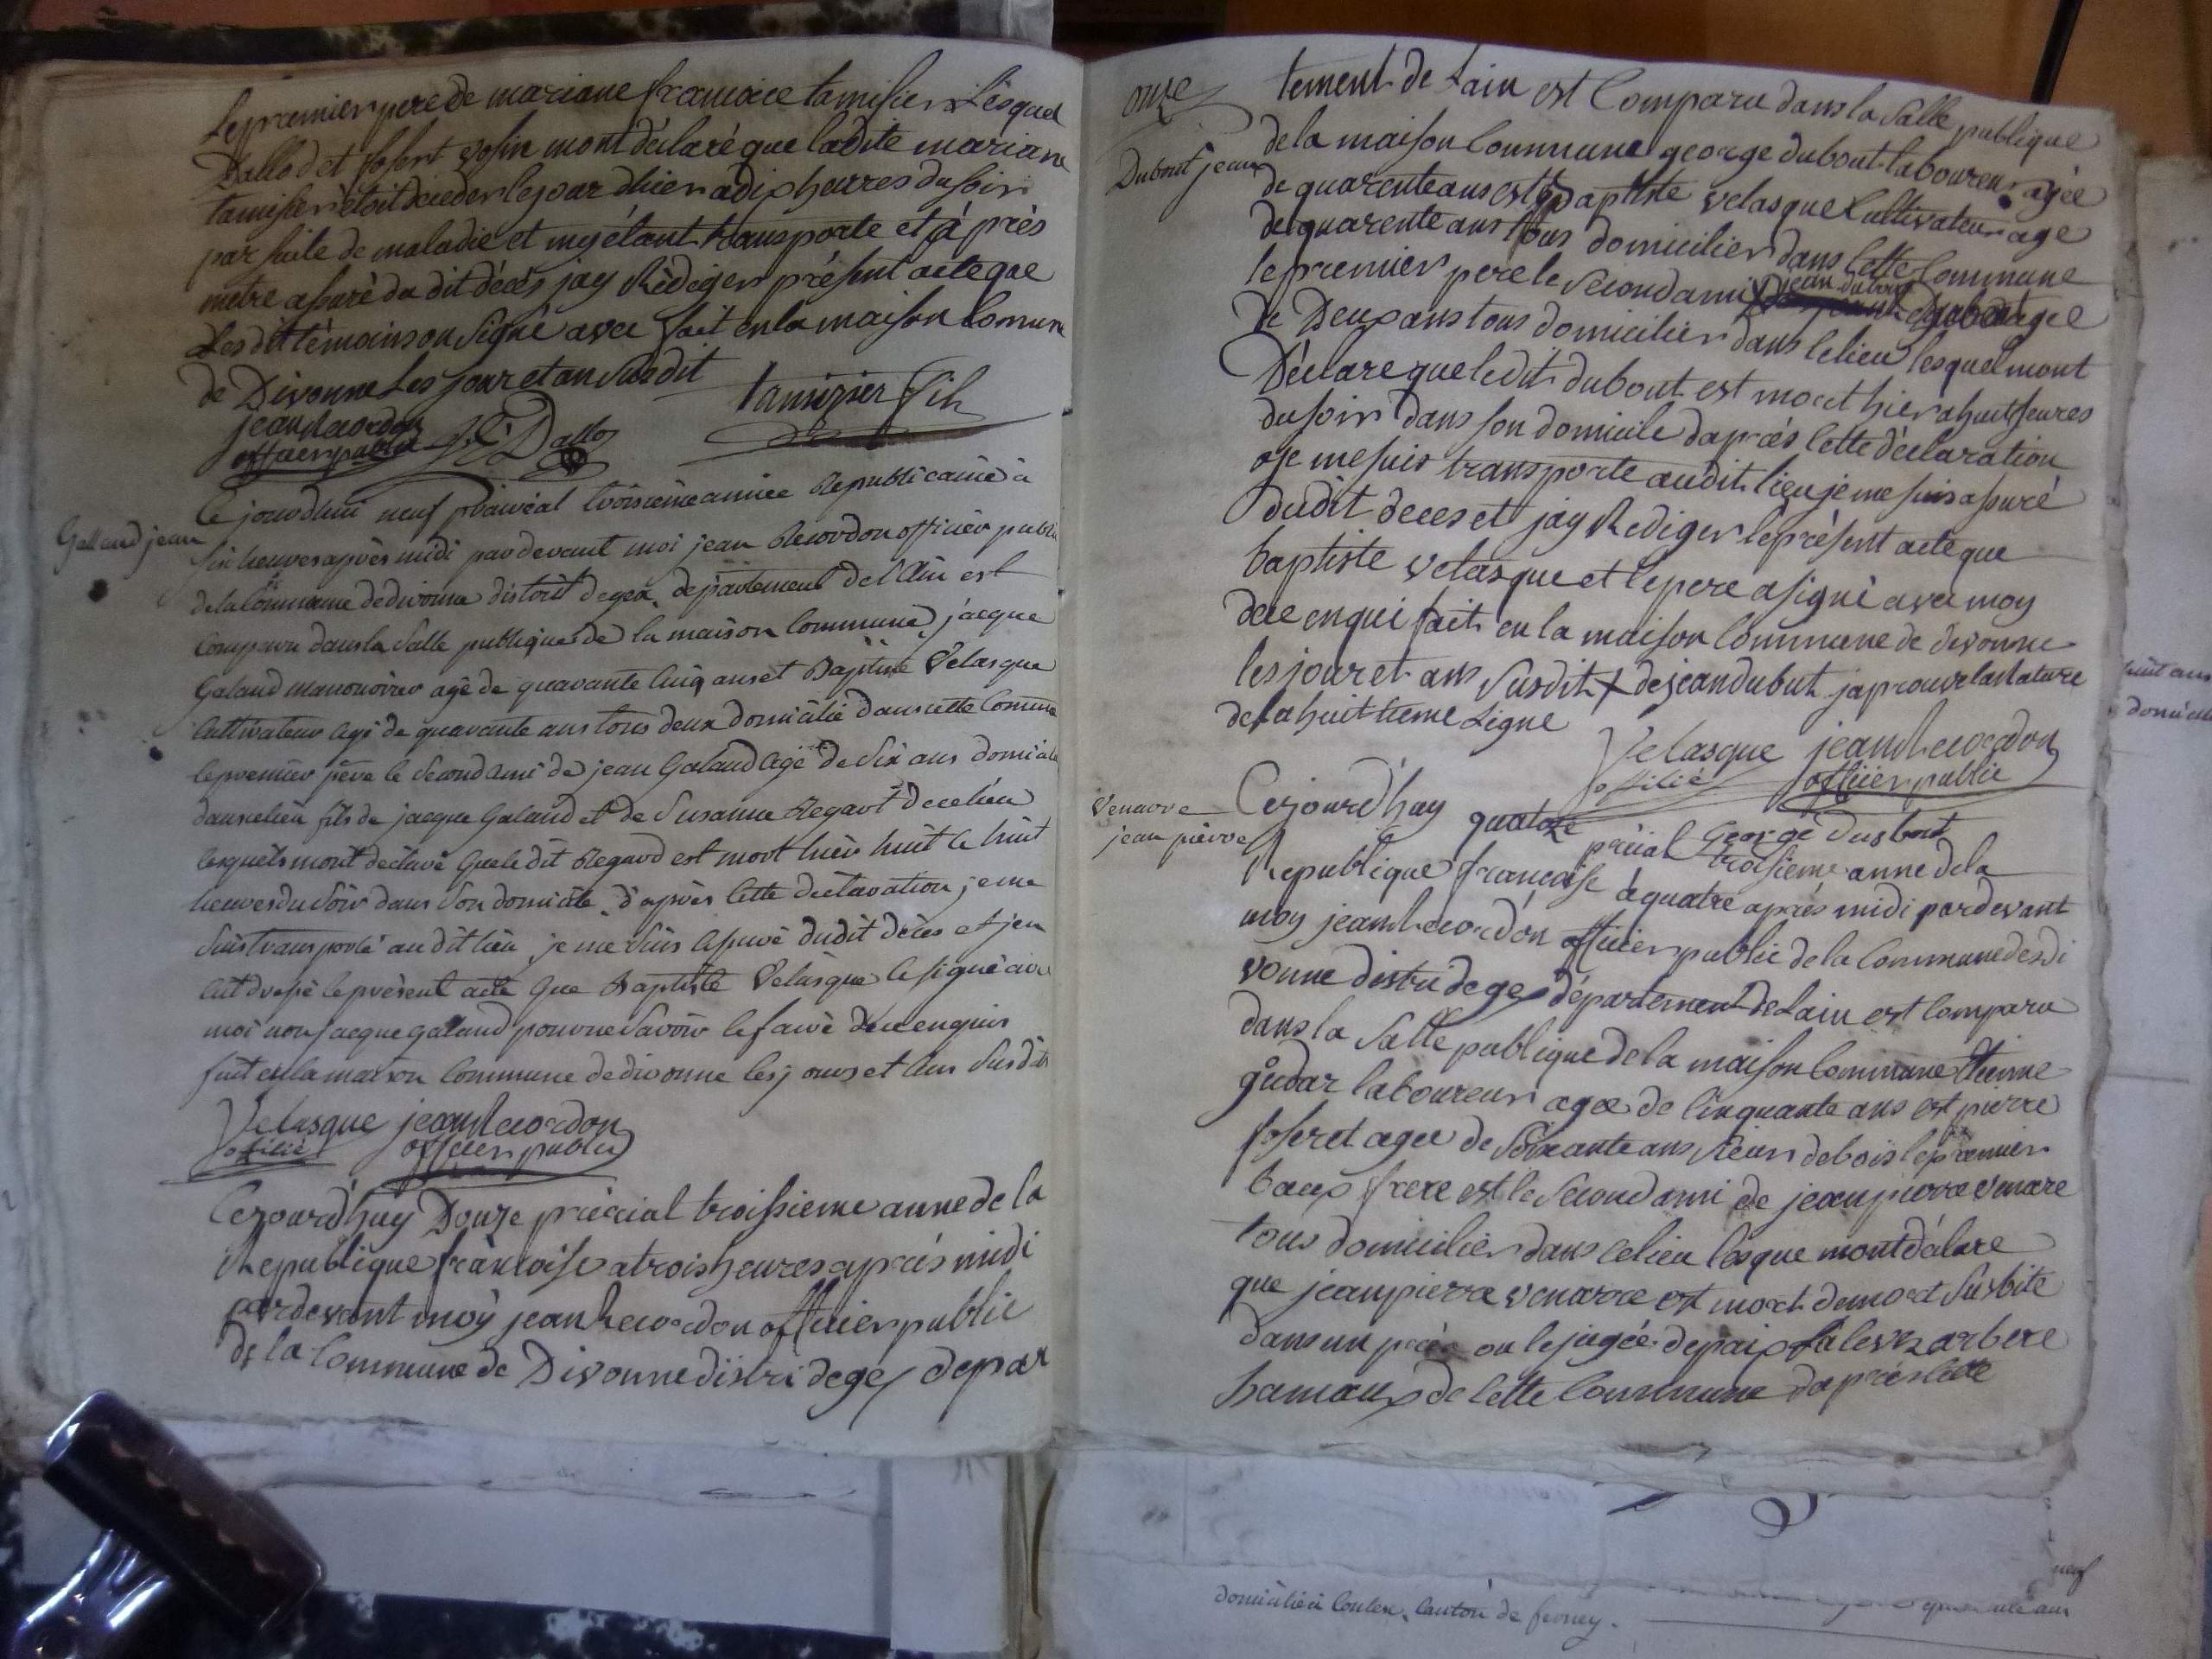 Le premier pere de mariane francoice tamisier Lesquel
Dallod et Joseph Vosin mont déclaré que ladite mariane
tamisier étoit deceder le jour dhier a dix heures du soir
par suite de maladie et mÿ étant transporte et à près
metre assuré du dit décès jay Rèdiger présent acte que
Les dit témoins on Signé avec fait en la maison Comune
de Divonne Les jour et an Susdit
jean Recordon Dallod tamisier fils
officier public
Galland jean
Ce jourdhui neuf prairéal troisieme année Republicaine à
six heures après midi pardevant moi jean Recordon officier public
de la Commune de divonne distrit de gex, departement de l'Ain est
Comparu dans la Salle publique de la maison Commune, jacque
Galand manouvrier agé de quarante cinq ans et Baptiste Velasque
Cultivateur agé de quarante ans tous deux domicilié dans cette Commune
le premier père le second ami de jean Galand agé de Six ans domicilié
dans ce lieu fils de jacque Galand et de Susanne Regard de ce lieu
lesquels mont déclaré que le dit Regard est mort hier huit le huit
heures du Soir dans Son domicile, d'après cette déclaration je me
Suis transporté au dit lieu, je me Suis assuré dudit décès et j'en
ait dressé le présent acte que Baptiste Velasque a signé avec
moi non jacque galand pour ne Savoir le faire de ce enquis
fait en la maison Commune de divonne les jours et ans Susdits
Velasque jean Recordon
officié officier public
Cejourd'huy Douze prérial troissieme anne de la
Republique francoise a trois heures après midi
par devant moÿ jean Recordon officier public
de la Commune de Divonne distri de gex depar
onze
Dubout jean
tement de Lain est Comparu dans la Salle publique
de la maison Commune george dubout laboureur agée
de quarente ans est Baptiste velasque Cultivateur age
de quarente ans tous domicilier dans cette Commune
le premier pere le Second ami jean dubout agée
de Deux ans tous domicilier dans le lieu lesquel mont
Déclare que ledit dubout est mort hier a huit heures
du soir dans son domicile daprés cette déclaration
je me suis transporte audit lieu je me suis assuré
dudit deces et jay Rediger le présent acte que
baptiste velasque et le pere a signé avec moy
de ce enqui fait en la maison Commune de divonne
les jour et ans Susdit + de jean dubut japrouve la Rature
de la huittieme Ligne
Velasque jean Recordon
officié officier public
George dusbout
Venarre
jean pierre
Cejourd'huy quatoze prérial troisieme anne de la
Republique francaise à quatre après midi pardevant
moy jean Recordon officier public de la Commune de di
vonne distri de gex département de Lain est Comparu
dans la Salle publique de la maison Commune Etienne
gudar laboureur agee de Cinquante ans est pierre
foseret agee de Soixante ans sieur de bois le premier
baux frere est le Second ami de jean pierre venare
tous domicilier dans ce lieu lesque mont déclare
que jean pierre venarre est mort de mort Susbite
dans un pré ou le jugée depaix a levez arbere
hamaux de Cette Commune daprés Cette
huit ans
domicilié
neuf
domicilié à Coulex, Canton de ferney.